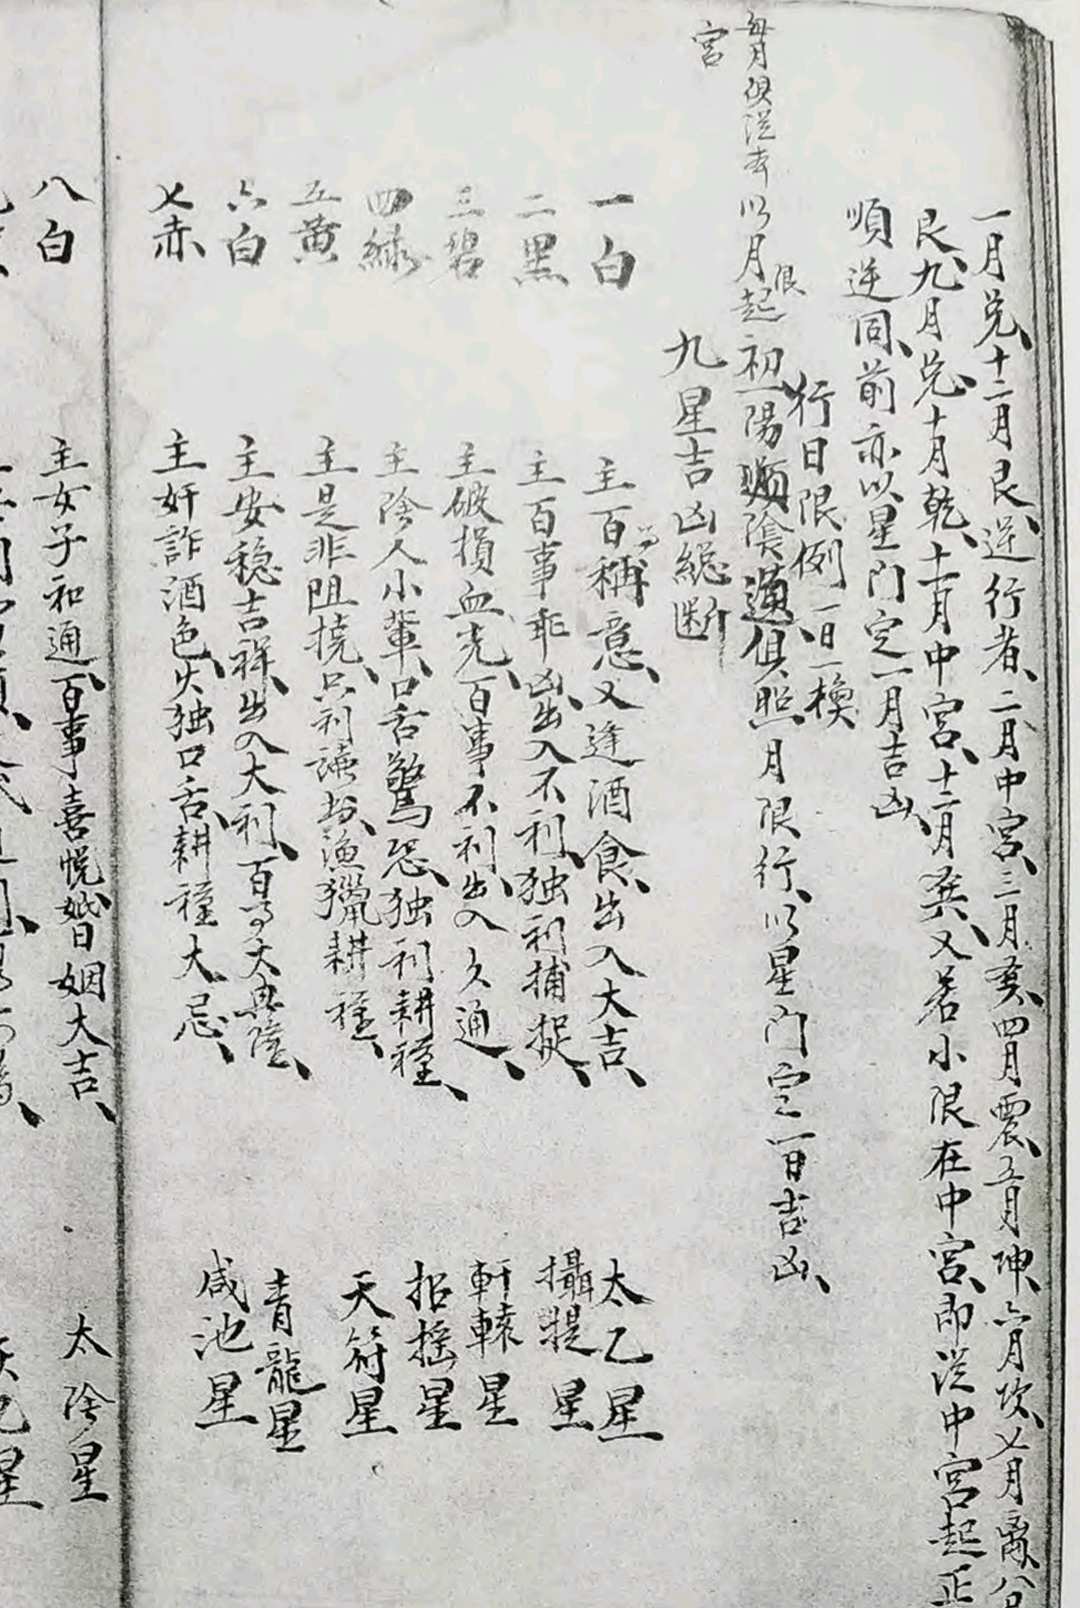 一月兌、十二月艮、逆行者、二月中宮、三月巽、四月震、五月坤、六月坎、七月离、八月
艮、九月兌、十月乾、十一月中宮、十二月巽、又若小限在中宮、即從中宮起正
順逆同、前亦以星門定一月吉凶、
行日限例、一日一換
每月俱從本以月限起初一陽順陰逆俱照月限行、以星門定一日吉凶、
宮
九星吉凶総断
一白 主百事稱意、又逢酒食、出入大吉、 太乙星
二黑 主百事乖凶、出入不利、独利捕捉、 攝提星
三碧 主破損血光、百事不利、出入久通、 軒轅星
四綠 主陰人小輩、口舌驚恐、独利耕種、 招搖星
五黄 主是非阻撓、只利漁獵耕種、 天符星
六白 主安穏吉祥、出入大利、百事大典隆、 青龍星
七赤 主奸詐酒色、失独口舌、耕種大忌、 咸池星
八白 主女子和通、百事喜悦、婚姻大吉、 太陰星